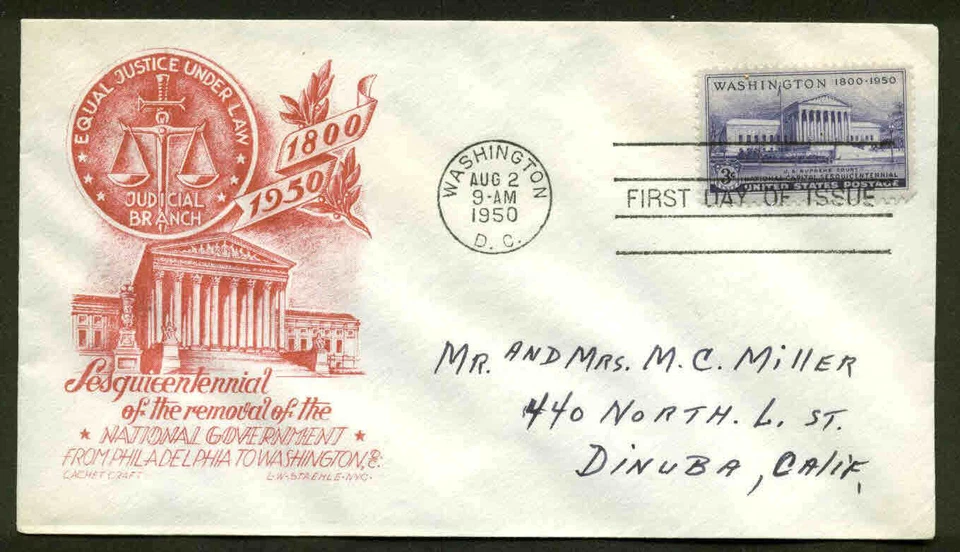 EQUAL JUSTICE UNDER LAW
JUDICIAL
BRANCH
1800
1950
Sesquicentennial
of the removal of the
NATIONAL GOVERNMENT
FROM PHILADELPHIA TO WASHINGTON, D.C.
CACHET CRAFT L·W·STAEHLE·NYC·
WASHINGTON
AUG 2
9-AM
1950
D. C.
WASHINGTON 1800-1950
3¢
U.S. SUPREME COURT
NATIONAL CAPITAL SESQUICENTENNIAL
UNITED STATES POSTAGE
FIRST DAY OF ISSUE
MR. AND MRS. M. C. MILLER
440 NORTH. L. ST.
DINUBA, CALIF.